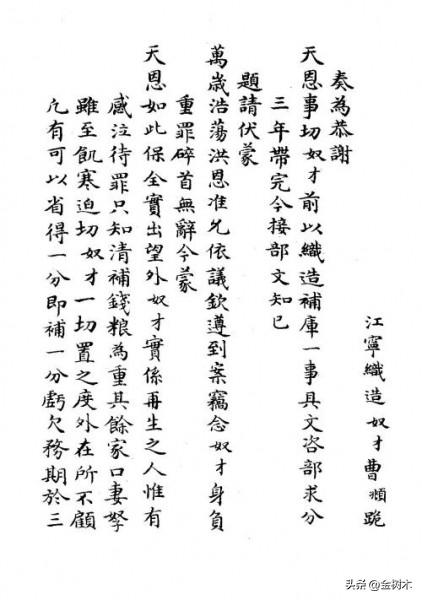 江寧織造奴才曹頫跪
奏為恭謝
天恩事切奴才前以織造補庫一事具文咨部求分
三年帶完今接部文知已
題請伏蒙
萬歲浩蕩洪恩准允依議欽遵到案竊念奴才身負
重罪碎首無辭今蒙
天恩如此保全實出望外奴才實係再生之人惟有
感泣待罪只知清補錢粮為重其餘家口妻孥
雖至飢寒迫切奴才一切置之度外在所不顧
凢有可以省得一分即補一分虧欠務期於三
头条@金树木